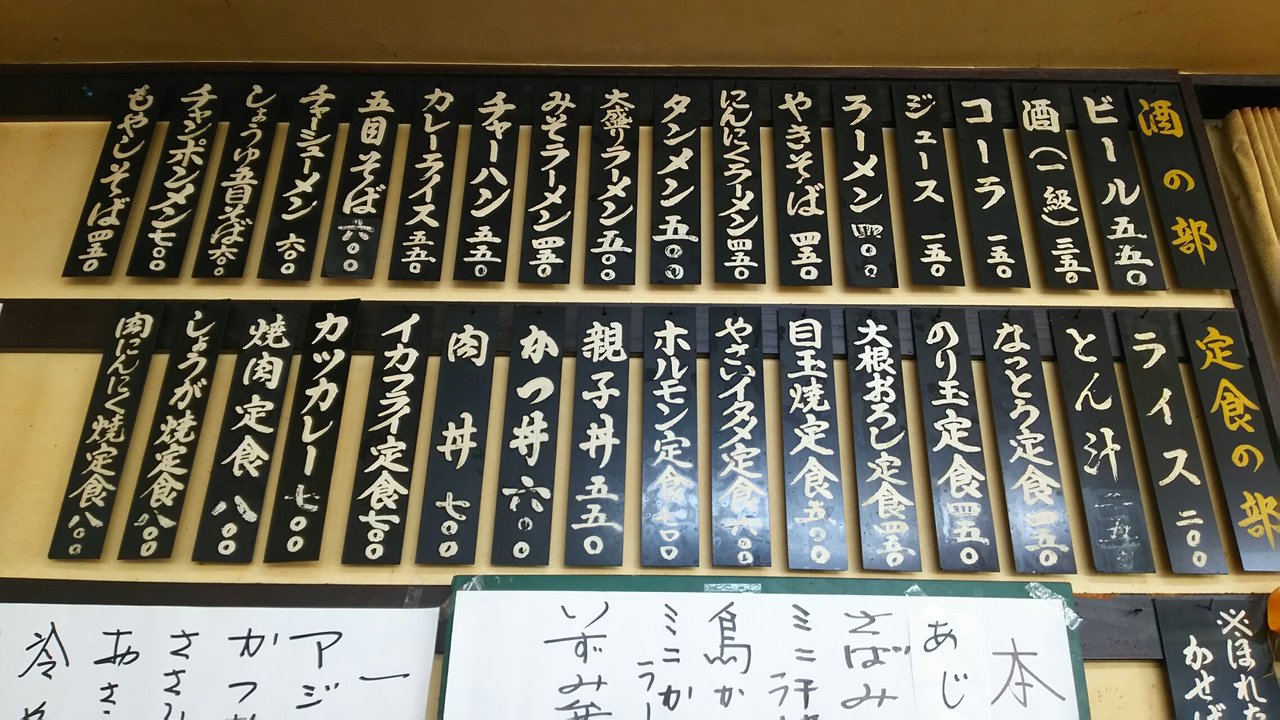 酒の部
ビール 五五〇
酒(一級) 三五〇
コーラ 一五〇
ジュース 一五〇
ラーメン 四〇〇
やきそば 四五〇
にんにくラーメン 四五〇
タンメン 五〇〇
大盛りラーメン 五〇〇
みそラーメン 四五〇
チャーハン 五五〇
カレーライス 五五〇
五目そば 六〇〇
チャーシューメン 六〇〇
しょうゆ五目そば 六〇〇
チャンポンメン 七〇〇
もやしそば 四五〇
定食の部
ライス 二〇〇
とん汁
なっとう定食 四五〇
のり玉定食 四五〇
大根おろし定食 四五〇
目玉焼定食 五〇〇
やさいイタメ定食 六〇〇
ホルモン定食 七〇〇
親子丼 五五〇
かつ丼 六〇〇
肉丼 七〇〇
イカフライ定食 七〇〇
カツカレー 七〇〇
焼肉定食 八〇〇
しょうが焼定食 八〇〇
肉にんにく焼定食 八〇〇
※ほれた
かせば
本
あじ
さばみ
ミニ
鳥か
ミニか
いずみ
アジ
かつ
ささみ
あさ
冷や